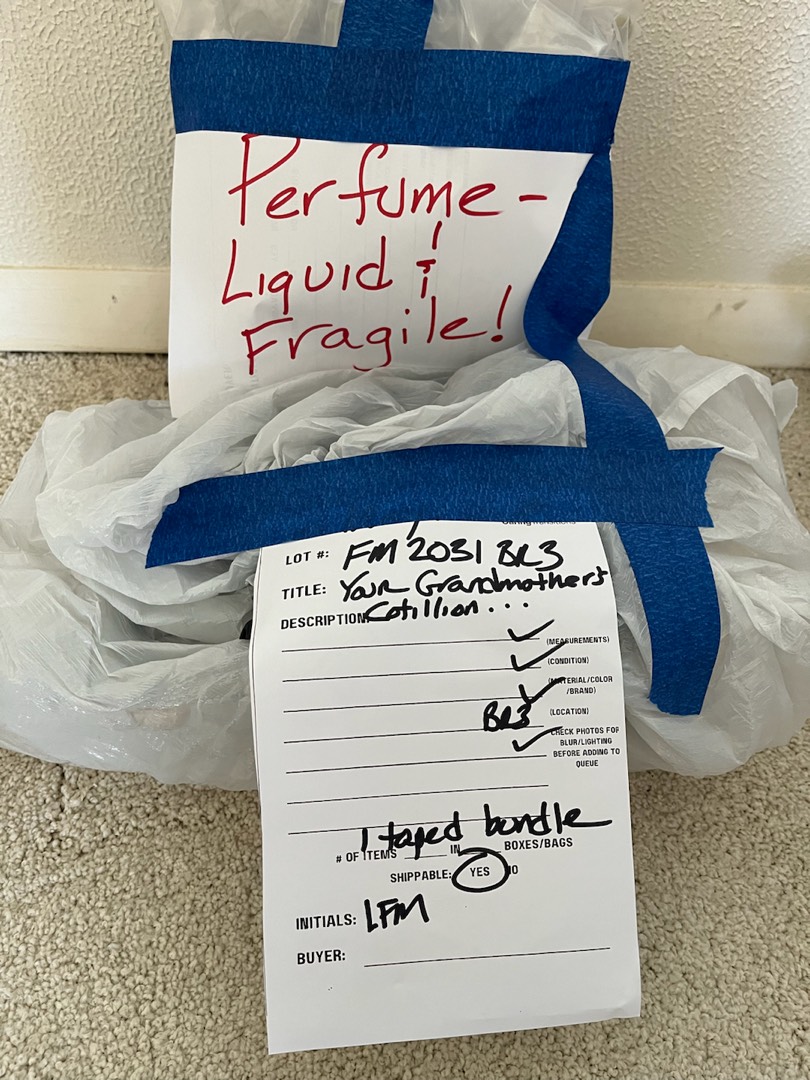 Perfume -
Liquid &
Fragile!
LOT #: FM 2031 BR3
TITLE: Your Grandmother's
DESCRIPTION: Cotillion...
(MEASUREMENTS)
(CONDITION)
(MATERIAL/COLOR
/BRAND)
BR3 (LOCATION)
CHECK PHOTOS FOR
BLUR/LIGHTING
BEFORE ADDING TO
QUEUE
1 taped bundle
# OF ITEMS ____ IN ____ BOXES/BAGS
SHIPPABLE: YES NO
INITIALS: LFM
BUYER: